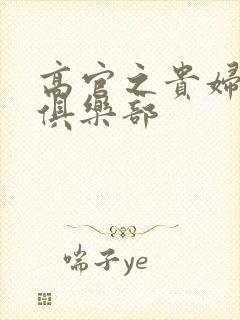 高官之貴婦
俱樂部
喘子ye